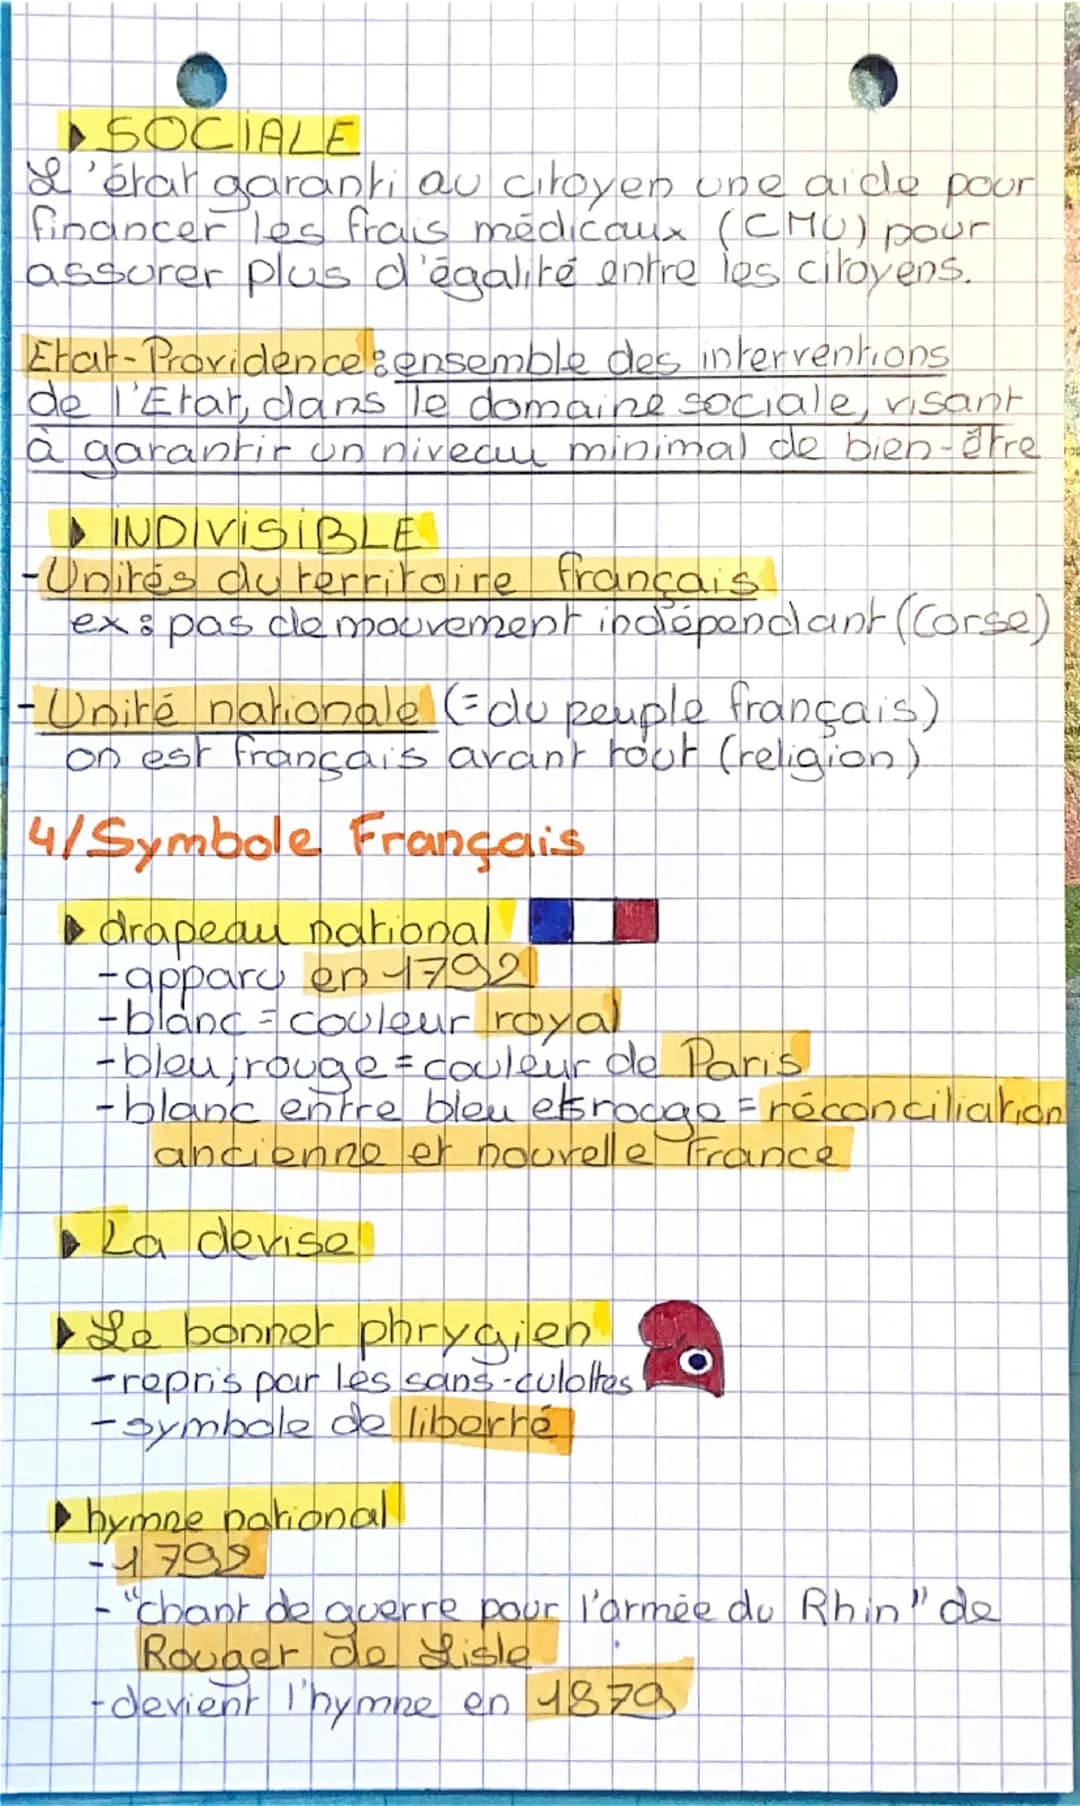 ▸ SOCIALE
L'état garanti au citoyen une aide pour
financer les frais médicaux (CMU) pour
assurer plus d'égalité entre les citoyens.
Etat-Providence : ensemble des interventions
de l'Etat, dans le domaine sociale, visant
à garantir un niveau minimal de bien-être
▸ INDIVISIBLE
-Unités du territoire français
ex : pas de mouvement indépendant (Corse)
-Unité nationale (= du peuple français)
on est français avant tout (religion)
4/Symbole Français
▸ drapeau national
-apparu en 1792
-blanc = couleur royal
-bleu, rouge = couleur de Paris
-blanc entre bleu et rouge = réconciliation
ancienne et nouvelle France
▸ La devise
▸ Le bonnet phrygien
-repris par les sans-culottes
-symbole de liberté
▸ hymne national
-1792
-"chant de guerre pour l'armée du Rhin" de
Rouger de Lisle
-devient l'hymne en 1879